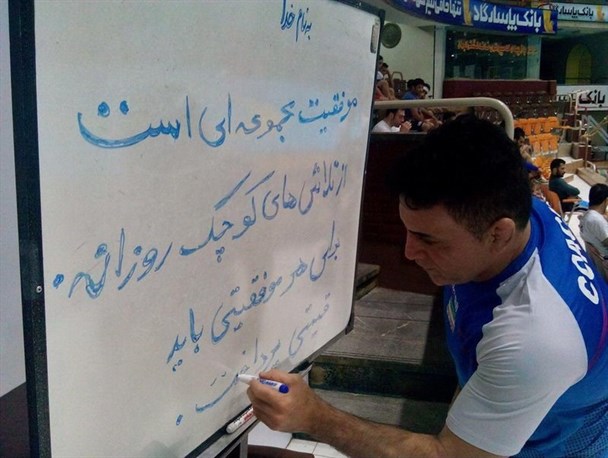 به نام خدا
موفقیت مجموعه ای است
از تلاش های کوچک روزانه.
برای هر موفقیتی باید
قیمتی پرداخت.
بانک پاسارگاد
بانک پاسارگاد
بانک
COACH